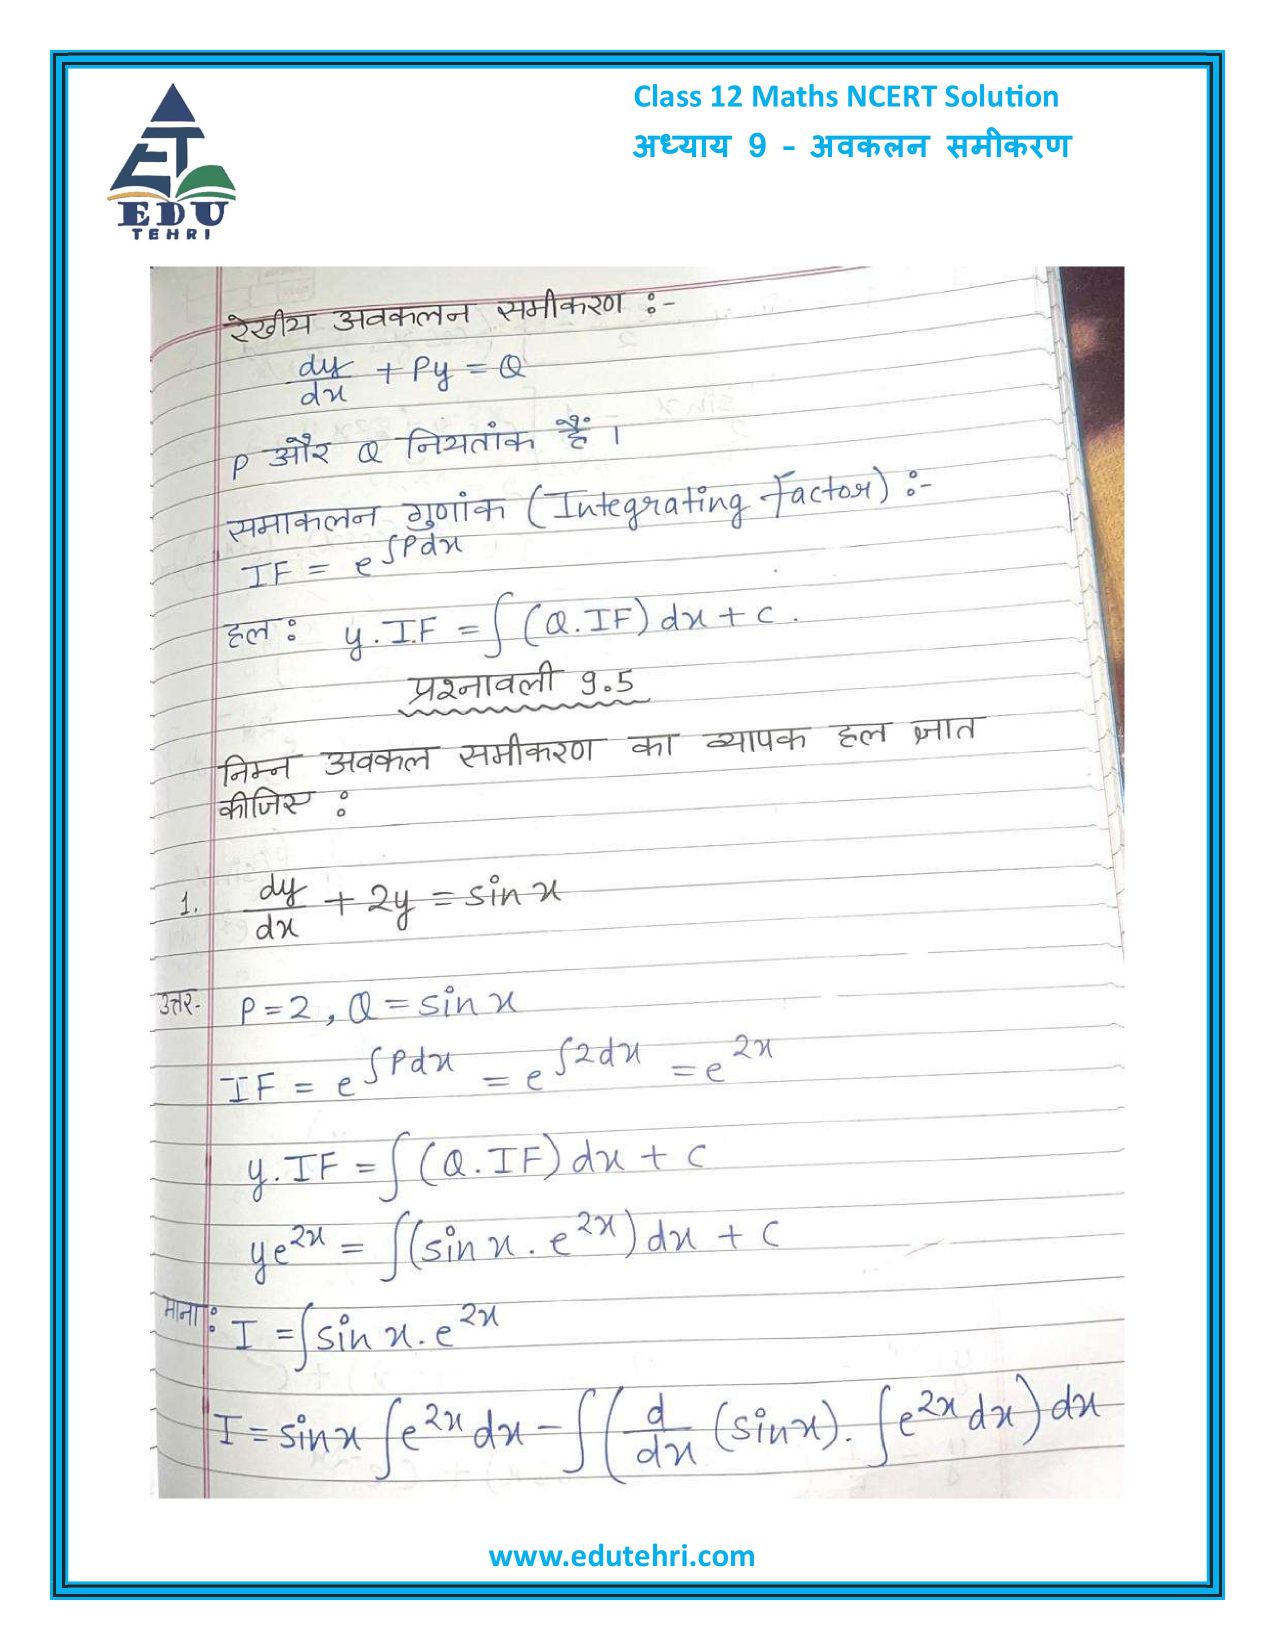 Class 12 Maths NCERT Solution
अध्याय 9 – अवकलन समीकरण
EDU
TEHRI
रेखीय अवकलन समीकरण :-
dy/dx + Py = Q
P और Q नियतांक हैं ।
समाकलन गुणांक (Integrating Factor) :-
IF = e^∫Pdx
हल : y.I.F = ∫(Q.IF) dx + C.
प्रश्नावली 9.5
निम्न अवकल समीकरण का व्यापक हल ज्ञात
कीजिए :
1. dy/dx + 2y = sin x
उत्तर- P=2, Q = sin x
IF = e^∫Pdx = e^∫2dx = e^2x
y.IF = ∫(Q.IF) dx + C
ye^2x = ∫(sin x . e^2x) dx + C
माना : I = ∫sin x . e^2x
I = sinx ∫e^2x dx – ∫(d/dx (sinx). ∫e^2x dx) dx
www.edutehri.com